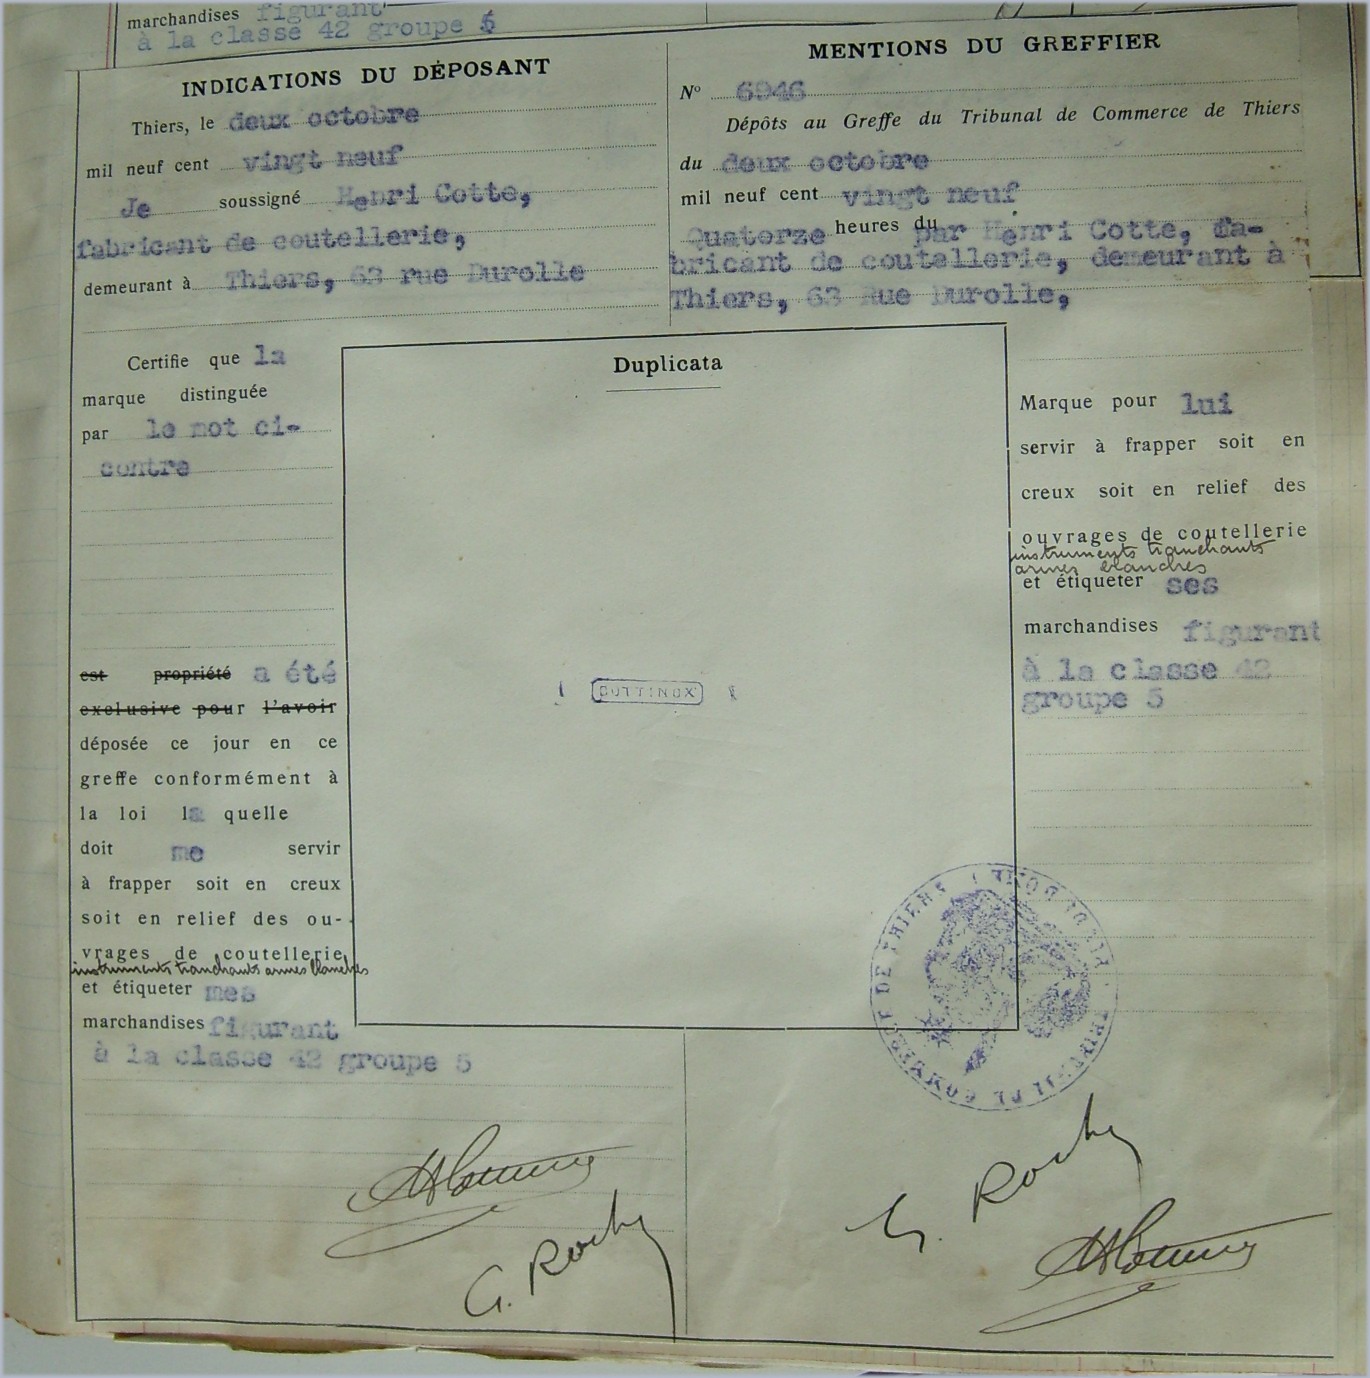 marchandises figurant
à la classe 42 groupe 5
INDICATIONS DU DÉPOSANT
Thiers, le deux octobre
mil neuf cent vingt neuf
Je soussigné Henri Cotte,
fabricant de coutellerie,
demeurant à Thiers, 63 rue Durolle
MENTIONS DU GREFFIER
No 6946
Dépôts au Greffe du Tribunal de Commerce de Thiers
du deux octobre
mil neuf cent vingt neuf
Quatorze heures du par Henri Cotte, fa-
bricant de coutellerie, demeurant à
Thiers, 63 Rue Durolle,
Certifie que la
marque distinguée
par le mot ci-
contre
est propriété a été
exclusive pour l'avoir
déposée ce jour en ce
greffe conformément à
la loi la quelle
doit me servir
à frapper soit en creux
soit en relief des ou-
vrages de coutellerie
instruments tranchants armes blanches
et étiqueter mes
marchandises figurant
à la classe 42 groupe 5
Duplicata
Marque pour lui
servir à frapper soit en
creux soit en relief des
ouvrages de coutellerie
instruments tranchants
armes blanches
et étiqueter ses
marchandises figurant
à la classe 42
groupe 5
TRIBUNAL DE COMMERCE DE THIERS
G. Roche
G. Roche